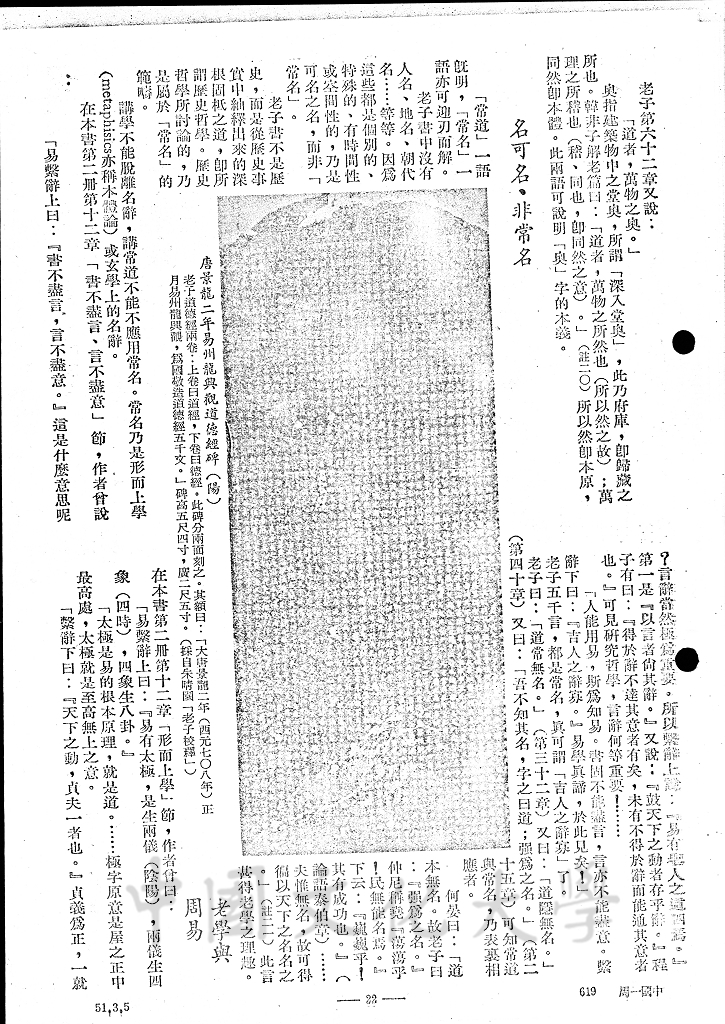 老子第六十二章又說：
「道者，萬物之奧。」
奧指建築物中之堂奧，所謂「深入堂奧」，此乃府庫，卽歸藏之
所也。韓非子解老篇曰：「道者，萬物之所然也（所以然之故）；萬
理之所稽也（稽、同也，卽同然之意）。」（註二〇）所以然卽本原，
同然卽本體。此兩語可說明「奧」字的本義。
名可名、非常名
「常道」一語
旣明，「常名」一
語亦可迎刃而解。
老子書中沒有
人名、地名、朝代
名……等等。因爲
這些都是個別的、
特殊的、有時間性
或空間性的，乃是
可名之名，而非「
常名」。
老子書不是歷
史，而是從歷史事
實中紬繹出來的深
根固柢之道，卽所
謂歷史哲學。歷史
哲學所討論的，乃
是屬於「常名」的
範疇。
唐景龍二年易州龍興觀道德經碑（陽）
老子道德經兩卷：上卷曰道經，下卷曰德經。此碑分兩面刻之。其額曰：「大唐景龍二年（西元七〇八年）正
月易州龍興觀，爲國敬造道德經五千文。」碑高五尺四寸，廣二尺五寸。（採自朱晴園「老子校釋」）
講學不能脫離名辭，講常道不能不應用常名。常名乃是形而上學
（metaphisics亦稱本體論）或玄學上的名辭。
在本書第二册第十二章「書不盡言、言不盡意」節，作者曾說
：
「易繫辭上曰：『書不盡言，言不盡意。』這是什麼意思呢
？言辭當然極爲重要。所以繫辭上說：『易有聖人之道四焉。』
第一是『以言者尙其辭。』又說：『鼓天下之動者存乎辭。』程
子有曰：『得於辭不達其意者有矣，未有不得於辭而能通其意者
也。』可見硏究哲學，言辭何等重要！……
「人能用易，斯爲知易。書固不能盡言，言亦不能盡意。繫
辭下曰：『吉人之辭寡。』易學眞諦，於此見矣！」
老子五千言，都是常名，眞可謂「吉人之辭寡」了。
老子曰：「道常無名。」（第三十二章）又曰：「道隱無名。」
（第四十章）又曰：「吾不知其名，字之曰道；强爲之名。」（第二
十五章）可知常道
與常名，乃表裏相
應者。
何晏曰：「道
本無名。故老子曰
：『强爲之名。』
仲尼稱堯『蕩蕩乎
！民無能名焉。』
下云：『巍巍乎！
其有成功也。』（
論語泰伯章）……
夫惟無名，故可得
徧以天下之名名之
。」（註二一）此言
甚得老學之理趣。
老學與
周易
在本書第二册第十二章「形而上學」節，作者曾曰：
「易繫辭上曰：『易有太極，是生兩儀（陰陽），兩儀生四
象（四時），四象生八卦。』
「太極是易的根本原理，就是道。……極字原意是屋之正中
最高處，太極就是至高無上之意。
「繫辭下曰：『天下之動，貞夫一者也。』貞義爲正，一就
51,3,5
— 22 —
619 周一國中